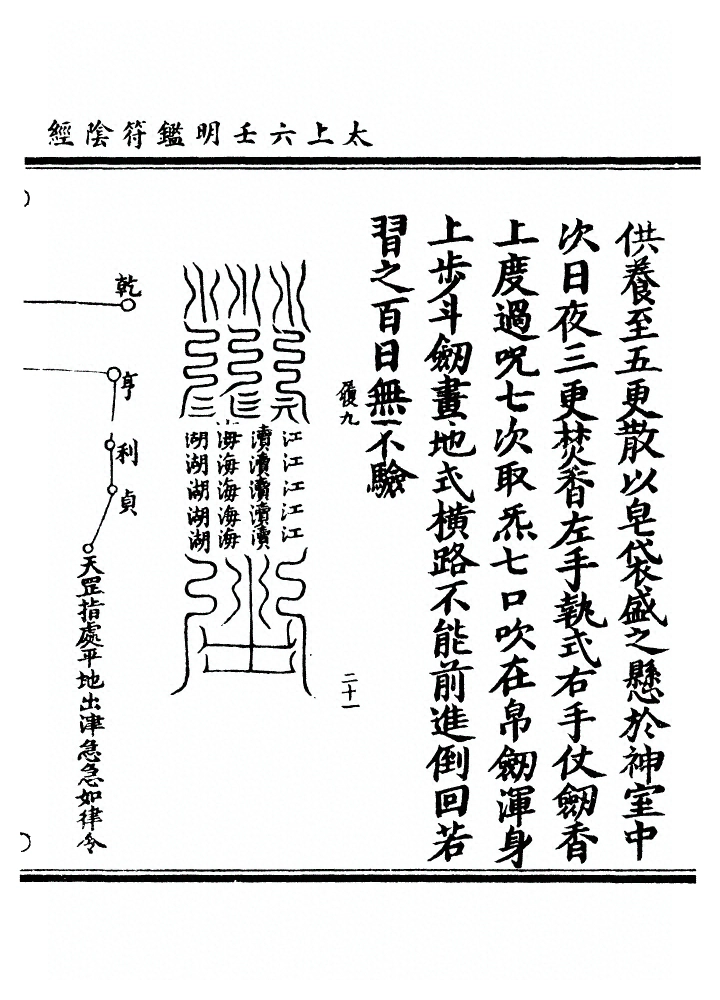 太上六壬明鑑符陰經
供養至五更散以皂袋盛之懸於神室中
次日夜三更焚香左手執式右手仗劔香
上度過呪七次取炁七口吹在帛劔渾身
上步斗劔畫地式橫路不能前進倒回若
習之百日無不驗
履九
二十一
江江江江江
瀆瀆瀆瀆瀆
海海海海海
湖湖湖湖湖
乾
亨
利
貞
天罡指處平地出津急急如律令